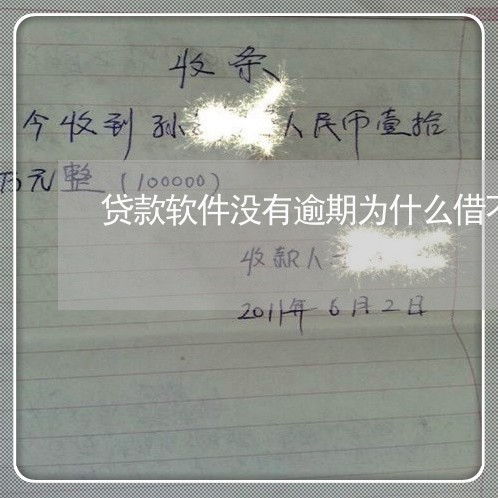 收条
今收到孙 人民币壹拾
万元整(100000)
贷款软件没有逾期为什么借
收款人
2011年6月2日